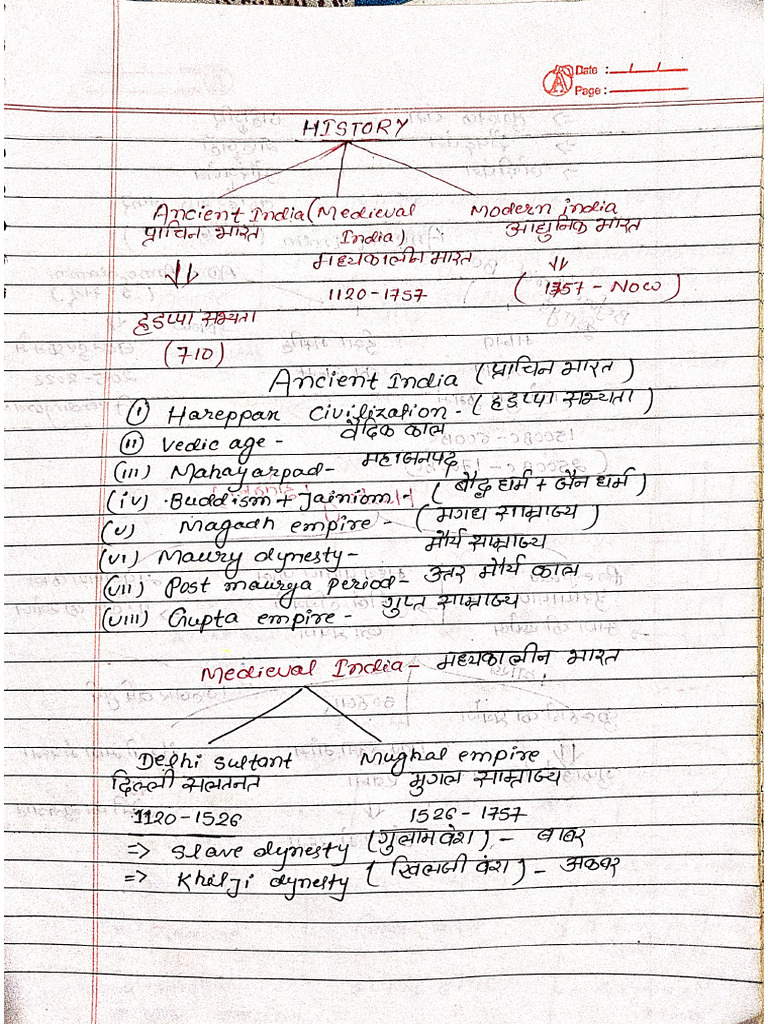 Date : __/__/__
Page :
HISTORY
Ancient India (Medieval India) Modern india
प्राचिन भारत मध्यकालीन भारत आधुनिक भारत
1120-1757 (1757 - Now)
हडप्पा सभ्यता
(710)
Ancient India (प्राचिन भारत)
(i) Hareppan Civilization - (हडप्पा सभ्यता)
(ii) Vedic age - वैदिक काल
(iii) Mahayarpad - महाजनपद
(iv) Buddism + Jainiom - (बौद्ध धर्म + जैन धर्म)
(v) Magadh empire - (मगध साम्राज्य)
(vi) Maury dynesty - मौर्य साम्राज्य
(vii) Post maurya period - उत्तर मौर्य काल
(viii) Gupta empire - गुप्त साम्राज्य
Medieval India - मध्यकालीन भारत
Delhi sultant Mughal empire
दिल्ली सलतनत मुगल साम्राज्य
1120-1526 1526-1757
=> Slave dynesty (गुलाम वंश) - बाबर
=> Khilji dynesty (खिलजी वंश) - अकबर